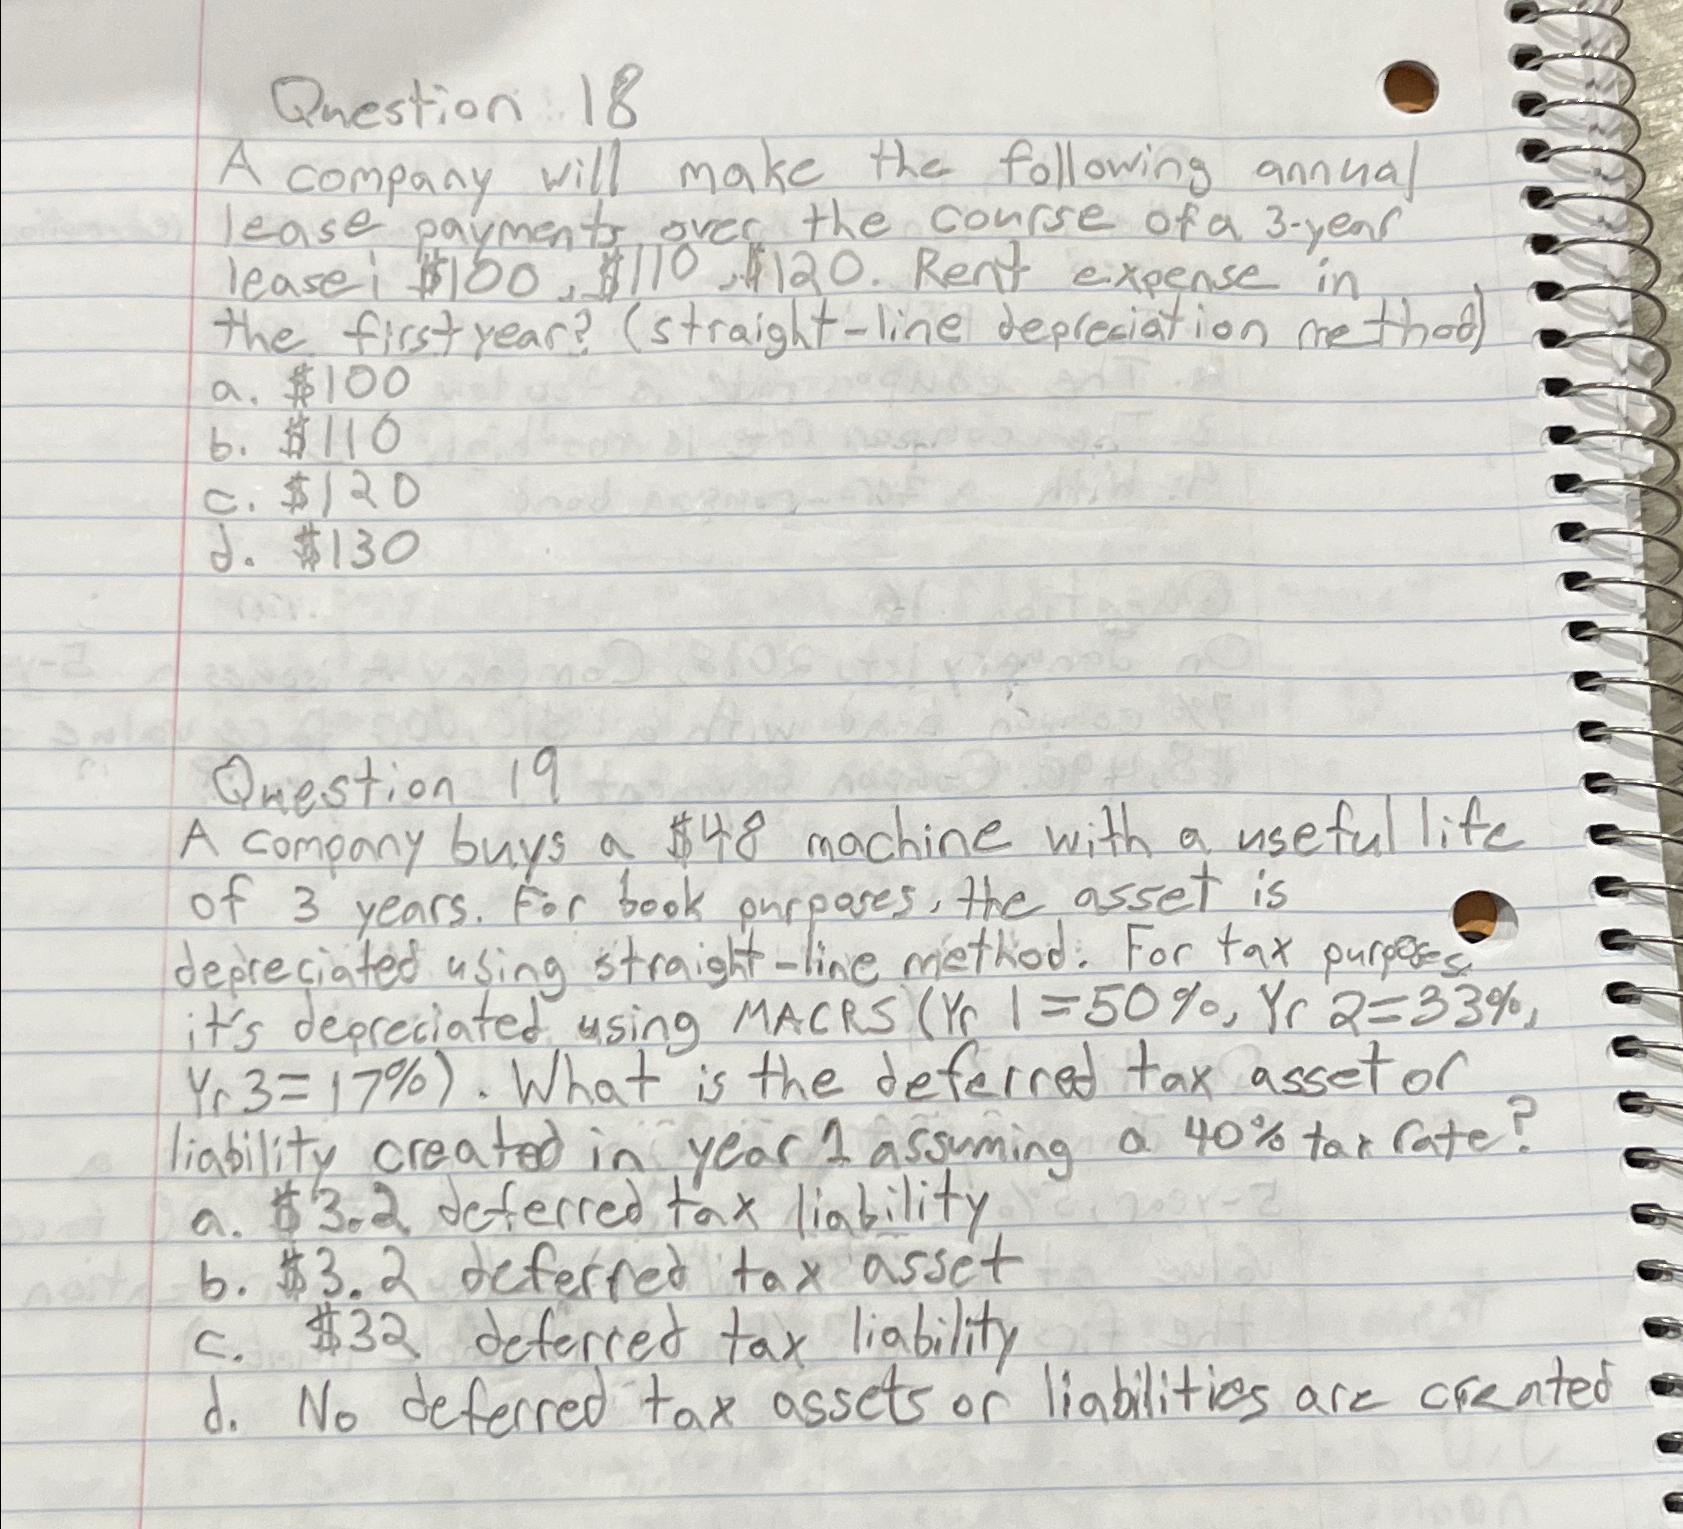 Question 18
A company will make the following annual
lease payments over the course of a 3-year
lease: $100, $110, $120. Rent expense in
the first year? (straight-line depreciation method)
a. $100
b. $110
c. $120
d. $130
Question 19
A company buys a $48 machine with a useful life
of 3 years. For book purposes, the asset is
depreciated using straight-line method. For tax purposes,
it's depreciated using MACRS (Yr 1=50%, Yr 2=33%,
Yr 3=17%). What is the deferred tax asset or
liability created in year 1 assuming a 40% tax rate?
a. $3.2 deferred tax liability
b. $3.2 deferred tax asset
c. $32 deferred tax liability
d. No deferred tax assets or liabilities are created